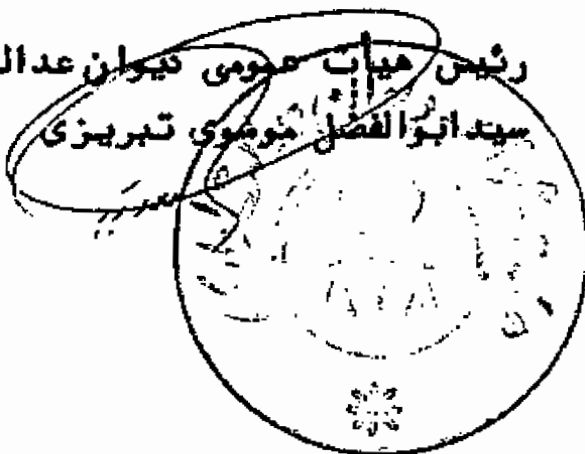 رئیس هیأت عمومی دیوان عدالـ
سیدابوالفضل موسوی تبریزی